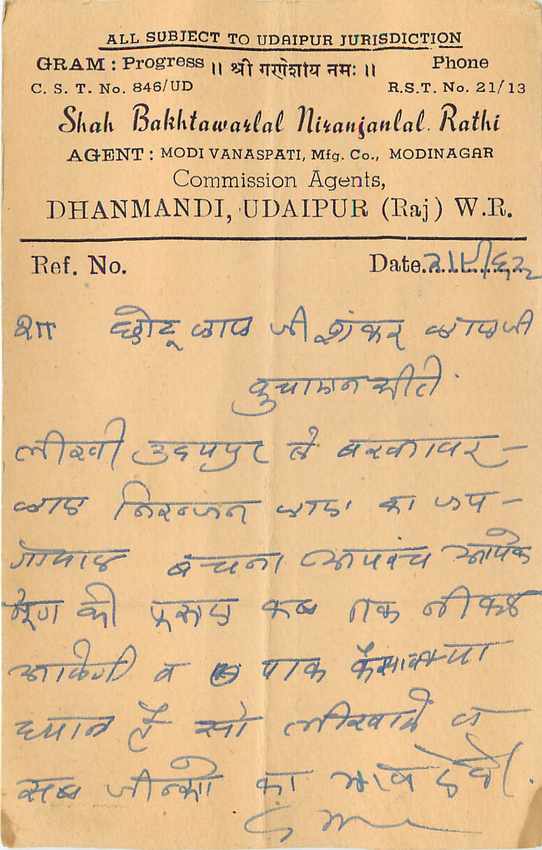 ALL SUBJECT TO UDAIPUR JURISDICTION
GRAM : Progress ।। श्री गणेशाय नमः ।। Phone
C. S. T. No. 846/UD R.S.T. No. 21/13
Shah Bakhtawarlal Niranjanlal Rathi
AGENT : MODI VANASPATI, Mfg. Co., MODINAGAR
Commission Agents,
DHANMANDI, UDAIPUR (Raj) W.R.
Ref. No. Date
शा छोटू लाल जी शंकर लालजी
कुचामन सीटी
लीखी उदयपुर से बखतावर-
लाल निरन्जन लाल का जय-
गोपाल बंचना आपके
मूंग की फसल कब तक नीकल
आवेगी व पाक
ध्यान है सो लीखावे व
सब जीन्सो का भाव देवे।